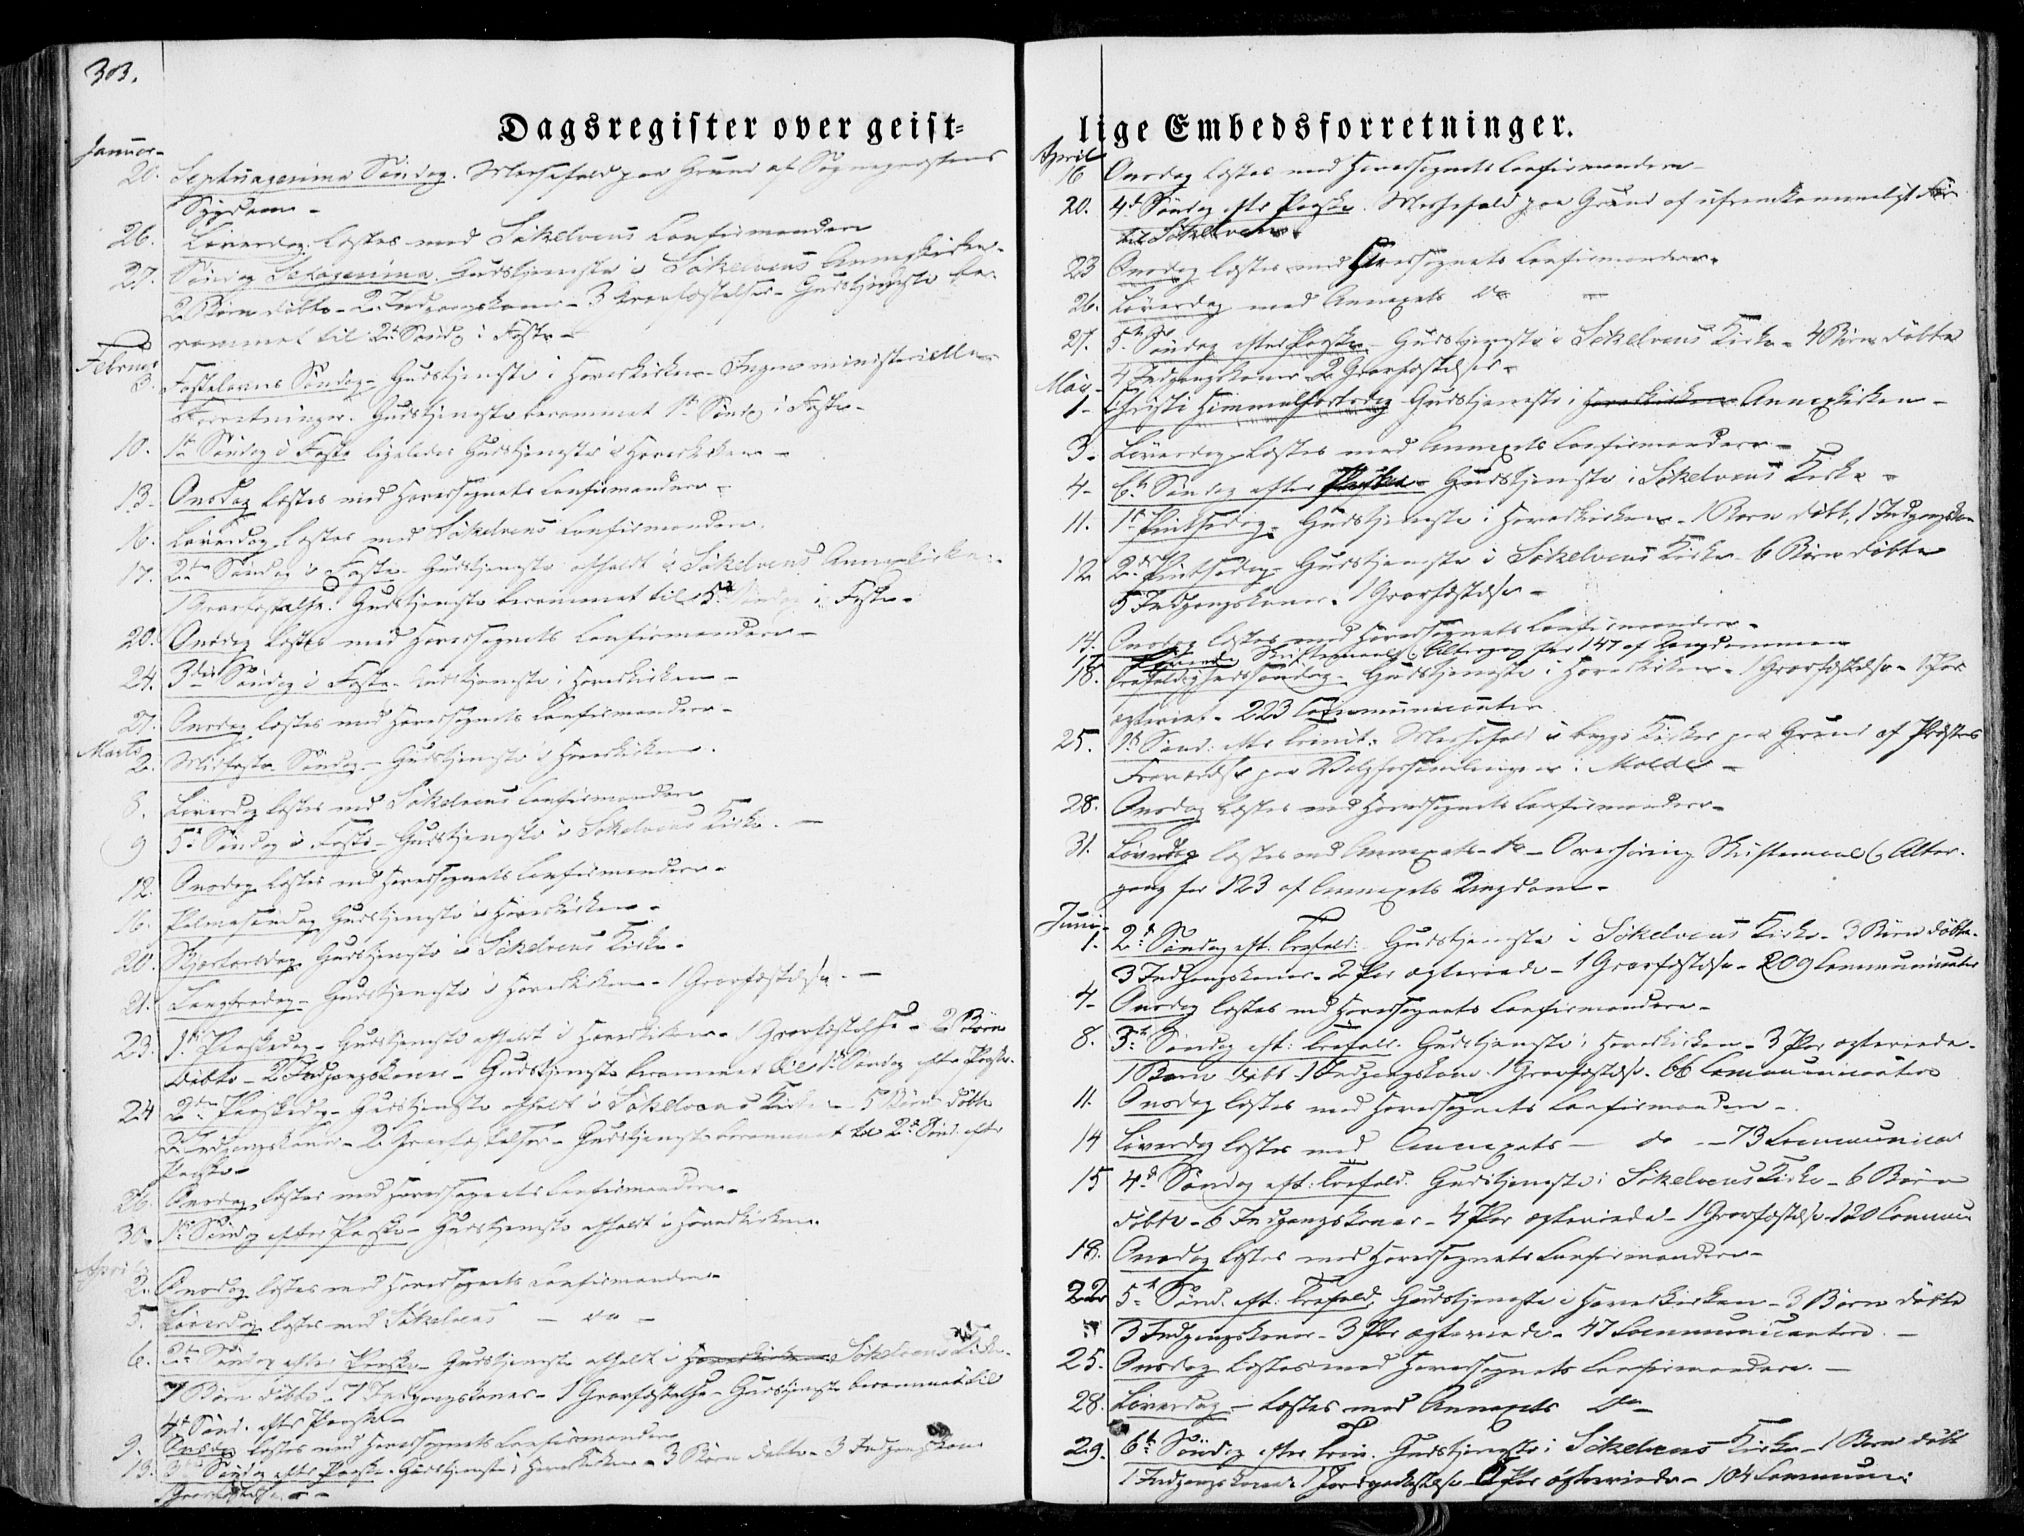 303.
Dagsregister over geist=
Januar
20. Septuagesima Søndag. Messefald paa Grund af Sognepræstens
Sygdom –
26. Løverdag. Læstes med Sökelvens Confirmander
27. Søndag Sexagesima. Gudstjeneste i Sökelvens Annexkirke –
2 Börn döbte – 2 Indgangskoner – 3 Gravfæstelser – Gudstjeneste be-
rammet til 2den Sönd: i Faste –
Februar
3. Fastelavns Søndag – Gudstjeneste i Hovedkirken – Ingen ministerielle
Forretninger. Gudstjeneste berammet 1ste Sönd: i Faste –
10. 1ste Søndag i Faste ligeledes Gudstjeneste i Hovedkirken –
13. Onsdag læstes med Hovedsognets Confirmander –
16. Løverdag læstes med Sökelvens Confirmander.
17. 2den Søndag i Faste. Gudstjeneste afholdt i Sökelvens Annexkirke –
1 Gravfæstelse. Gudstjeneste berammet til 5te Søndag i Faste –
20. Onsdag læstes med Hovedsognets Confirmander –
24. 3die Søndag i Faste. Gudstjeneste i Hovedkirken –
27. Onsdag læstes med Hovedsognets Confirmander –
Marts
2. Midfaste Søndag – Gudstjeneste i Hovedkirken.
8. Løverdag læstes med Sökelvens Confirmander
9 5te Søndag i Faste – Gudstjeneste i Sökelvens Kirke. –
12. Onsdag læstes med Hovedsognets Confirmander –
16. Palmesøndag Gudstjeneste i Hovedkirken –
20. Skjærtorsdag Gudstjeneste i Sökelvens Kirke –
21. Langfredag – Gudstjeneste i Hovedkirken – 1 Gravfæstelse. –
23. 1ste Paaskedag – Gudstjeneste afholdt i Hovedkirken – 1 Gravfæstelse – 2 Börn
döbte – 2 Indgangskoner – Gudstjeneste berammet til 1ste Søndag efter Paaske.
24 2den Paaskedag – Gudstjeneste afholdt i Sökelvens Kirke – 5 Börn döbte
Indgangskoner – 2 Gravfæstelser – Gudstjeneste berammet til 2den Sönd. efter
Paaske –
26. Onsdag læstes med Hovedsognets Confirmander –
30. 1ste Søndag efter Paaske – Gudstjeneste afholdt i Hovedkirken.
April
2. Onsdag læstes med Hovedsognets Confirmander
5. Løverdag læstes med Sökelvens – do –
6. 2den Søndag efter Paaske – Gudstjeneste afholdt i Hovedkirken Sökelvens Kirke.
7 Børn döbte – 7 Indgangskoner – 1 Gravfæstelse – Gudstjeneste berammet til
4de Sönd. efter Paaske –
9. Onsdag læstes med Hovedsognets Confirmander
13. 3die Søndag efter Paaske. Gudstjeneste i Hovedkirken – 3 Børn döbte – 3 Indgangskoner
1 Gravfæstelse –
lige Embedsforretninger.
April
16 Onsdag læstes med Hovedsognets Confirmander –
20. 4de Søndag efter Paaske. Messefald paa Grund af ufremkommeligt Före
til Sökelven.
23 Onsdag læstes med Hovedsognets Confirmander.
26. Løverdag med Annexets do –
27. 5te Søndag efter Paaske – Gudstjeneste i Sökelvens Kirke – 4 Börn döbte
4 Indgangskoner – 2 Gravfæstelser –
Mai
1 – Christi Himmelfartsdag – Gudstjeneste i Hovedkirken Annexkirken –
3 – Løverdag læstes med Annexets Confirmander –
4 – 6te Søndag efter Paaske – Gudstjeneste i Sökelvens Kirke –
11. 1ste Pintsedag – Gudstjeneste i Hovedkirken – 1 Barn döbt, 1 Indgangskone
12 2den Pintsedag – Gudstjeneste i Sökelvens Kirke – 6 Börn döbte
5 Indgangskoner. 1 Gravfæstelse –
14. Onsdag læstes med Hovedsognets Confirmander –
17. Løverd. Skriftemaal & Altergang for 147 af Ungdommen
18. Trefoldighedssøndag – Gudstjeneste i Hovedkirken – 1 Gravfæstelse – 1 Par
ægteviet – 223 Communicanter
25. 1ste Sønd: efter Trinit: Messefald i begge Kirker paa Grund af Præstens
Fraværelse paa Valgforsamlingen i Molde –
28. Onsdag læstes med Hovedsognets Confirmander –
31. Løverdag læstes med Annexets do – Overhøring Skriftemaal & Alter-
gang for 123 af Annexets Ungdom –
Juni
1. 2den Søndag eft. Trefold: Gudstjeneste i Sökelvens Kirke – 3 Børn döbte –
3 Indgangskoner – 2 Par ægteviede – 1 Gravfæstelse – 209 Communicanter
4 – Onsdag læstes med Hovedsognets Confirmander –
8. 3die Søndag eft: Trefold. Gudstjeneste i Hovedkirken – 3 Par ægteviede –
1 Barn döbt. 1 Indgangskone. 1 Gravfæstelse. 66 Communicanter
11. Onsdag læstes med Hovedsognets Confirmander –
14 Løverdag læstes med Annexets – do – 73 Communican
15 4de Søndag eft: Trefold. Gudstjeneste i Sökelvens Kirke – 6 Börn
döbte – 6 Indgangskoner – 4 Par ægteviede – 1 Gravfæstelse 120 Commun
18. Onsdag læstes med Hovedsognets Confirmander –
22 5te Sønd. eft: Trefold. Gudstjeneste i Hovedkirken – 3 Börn döbte
3 Indgangskoner – 3 Par ægteviede – 47 Communicantere. –
25. Onsdag læstes med Hovedsognets Confirmander. –
28. Løverdag – læstes med Annexets do –
29. 6te Søndag efter Trin: Gudstjeneste i Sökelvens Kirke – 1 Barn döbt
1 Indgangskone 1 Jordpaakastelse Par ægteviede – 104 Commun: